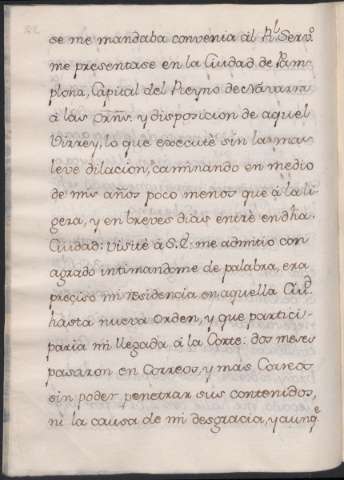 se me mandaba convenia ál Rl. Servo.
me presentase en la Ciudad de Pam-
plona, Capital del Reyno de Navarra
á las ornˢ. y disposicion de aquel
Virrey, lo que execute sin la mas
leve dilacion, caminando en medio
de mis años poco menos que á la li
gera, y en breves dias entre en dha.
Ciudad: visité á S.E. me admitio con
agrado intimandome de palabra, era
preciso mi residencia en aquella Ciud.
hasta nueva orden, y que partici-
paria mi llegada á la Corte: dos meses
pasaron en Correos, y mas Correos
sin poder penetrar sus contenidos,
ni la causa de mi desgracia, y aunqe.